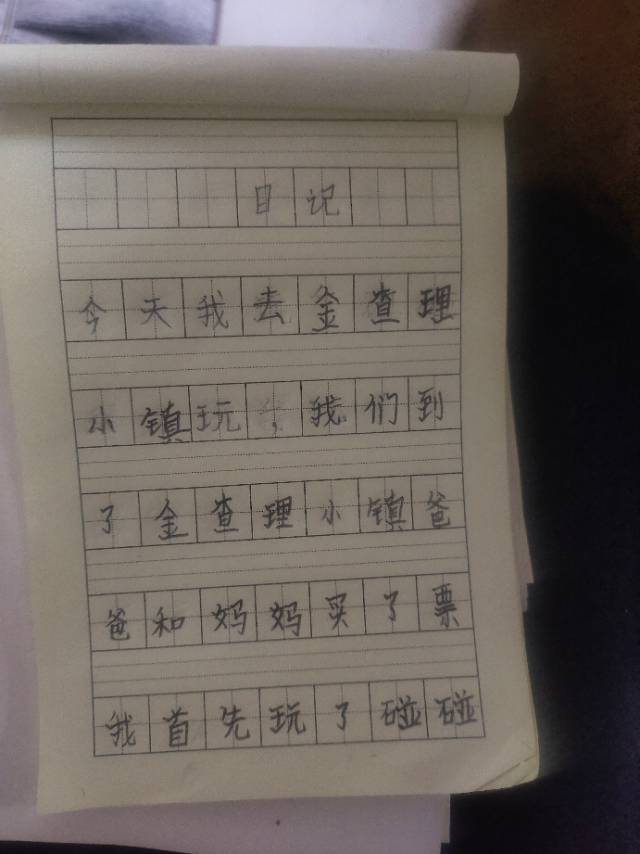 日记
今天我去金查理
小镇玩,我们到
了金查理小镇爸
爸和妈妈买了票
我首先玩了碰碰